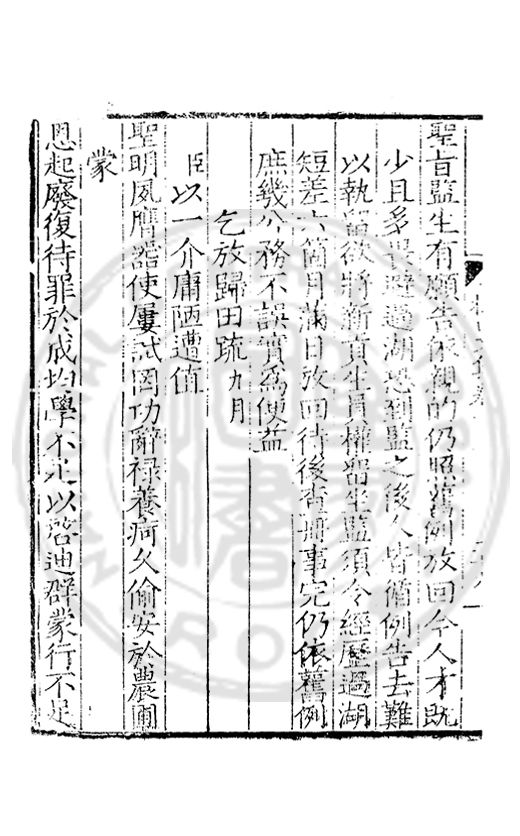 聖旨監生有願告依親的仍照舊例放回今人才既
少且多畏避過湖恐到監之後人皆循例告去難
以執留欲將新貢生員權留坐監須令經歷過湖
短差六箇月滿日放回待後查冊事完仍依舊例
庶幾公務不誤實為便益
乞放歸田疏九月
臣以一介庸陋遭值
聖明夙膺 使屢試罔功辭祿養痾久偷安於農圃
蒙
恩起廢復待罪於成均學不足以啓迪群蒙行不足